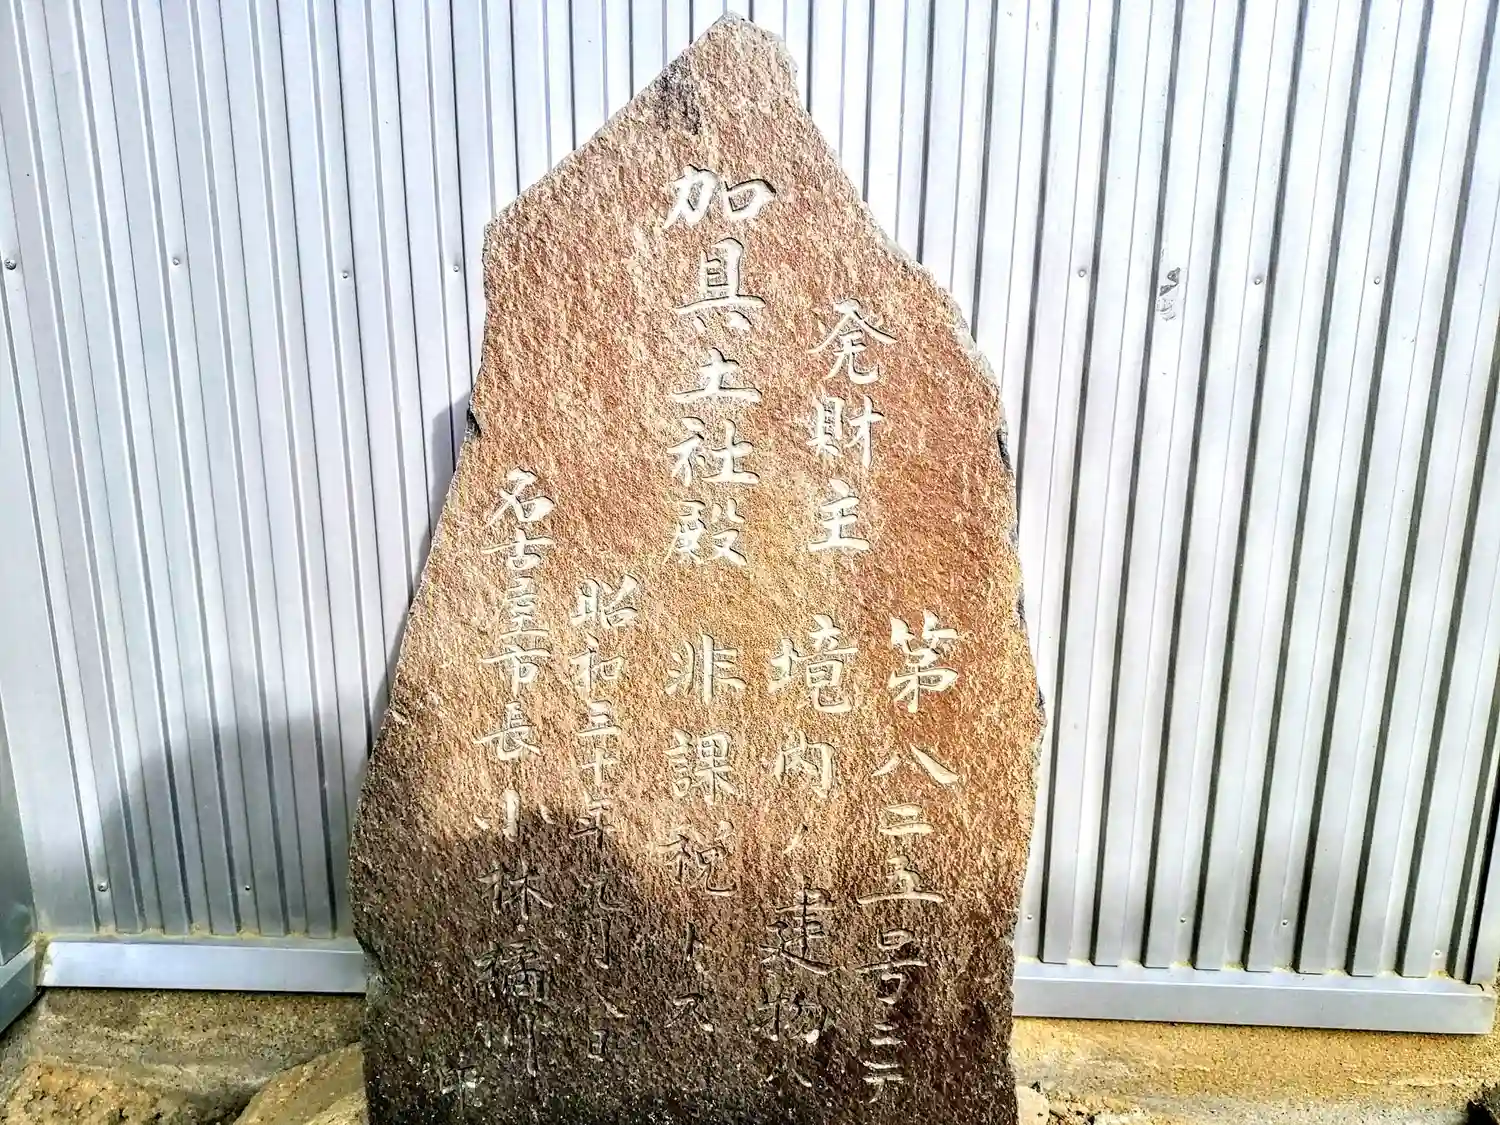 第八三五号ニテ
発財主 境内ノ建物ハ
加具土社殿 非課税トス
昭和三十年九月八日
名古屋市長 小林橘川